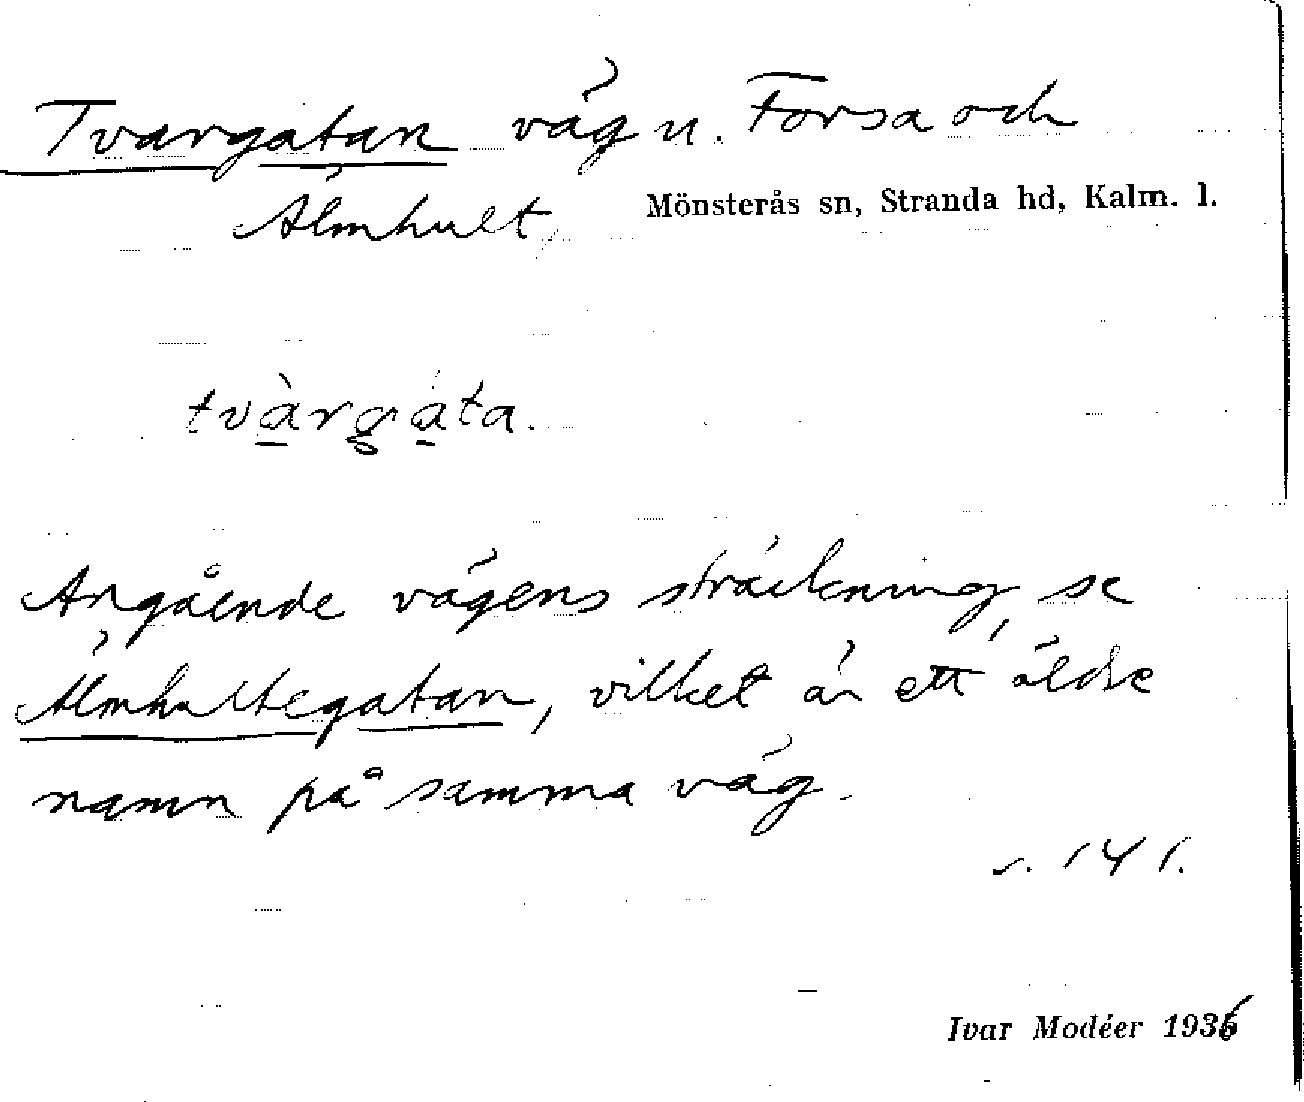 Tvargatan väg u. Forsa och
Älmhult
Mönsterås sn, Stranda hd, Kalm. l.
tvàrgata.
Angående vägens sträckning, se
Älmhultegatan, vilket är ett äldre
namn på samma väg.
s. 141.
Ivar Modéer 1936